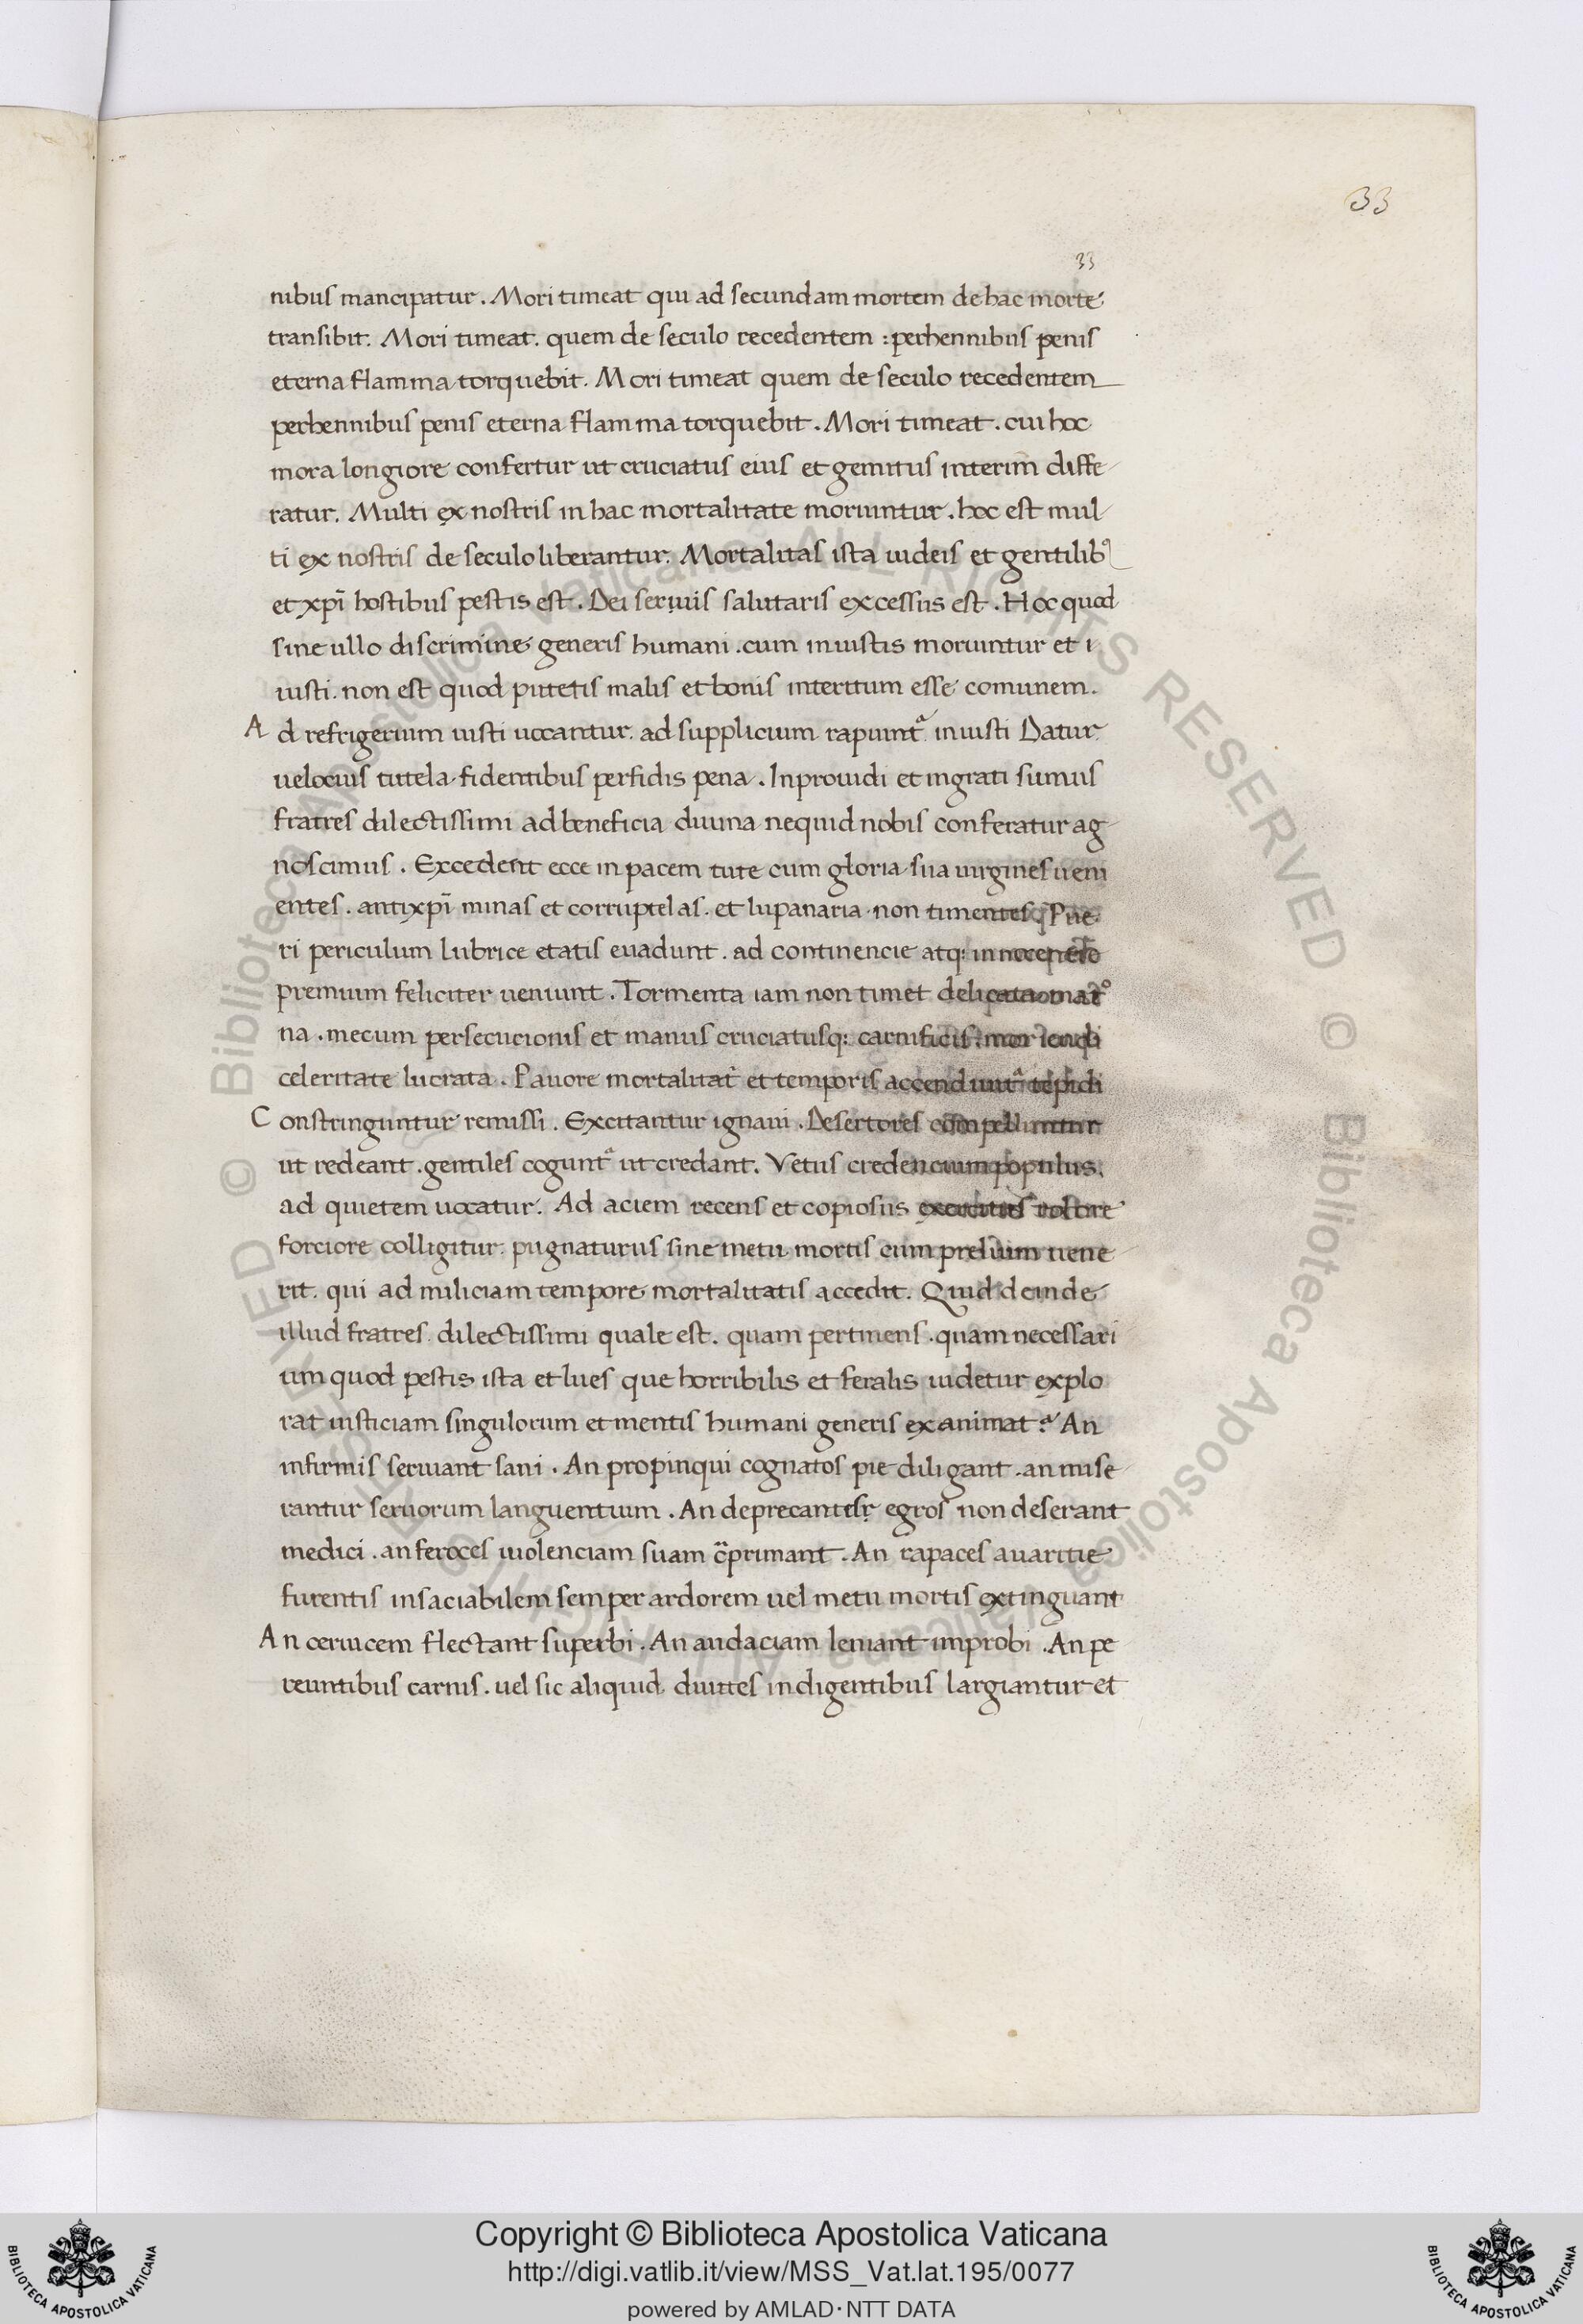 33
33
nibus mancipatur. Mori timeat qui ad secundam mortem de hac morte
transibit. Mori timeat. quem de seculo recedentem : perhennibus penis
eterna flamma torquebit. Mori timeat quem de seculo recedentem
perhennibus penis eterna flamma torquebit. Mori timeat. cui hoc
mora longiore confertur ut cruciatus eius et gemitus interim diffe
ratur. Multi ex nostris in hac mortalitate moriuntur. hoc est mul
ti ex nostris de seculo liberantur. Mortalitas ista iudeis et gentilib⁹
et xp̄i hostibus pestis est. Dei seruis salutaris excessus est. Hoc quod
sine ullo discrimine generis humani. cum iniustis moriuntur et i
iusti. non est quod putetis malis et bonis interitum esse comunem.
Ad refrigerium iusti uocantur. ad supplicium rapiunt᷑ iniusti Datur
uelocius tutela fidentibus perfidis pena. Inprouidi et ingrati sumus
fratres dilectissimi ad beneficia diuina nequid nobis conferatur ag
noscimus. Excedent ecce in pacem tute cum gloria sua uirgines ueni
entes. antixp̄i minas et corruptelas. et lupanaria non timentes. Pue
ri periculum lubrice etatis euadunt. ad continencie atq:
premium feliciter ueniunt. Tormenta iam non timet delicata
na. mecum persecucionis et manus cruciatusq: carnificis
celeritate lucrata. Pauore mortalitat᷑ et temporis accendunt᷑ tepidi
Constringuntur remissi. Excitantur ignaui. Desertores compelluntur
ut redeant. gentiles cogunt᷑ ut credant. Vetus credencium populus.
ad quietem uocatur. Ad aciem recens et copiosus exercitus
forciore colligitur. pugnaturus sine metu mortis cum prelium uene
rit. qui ad miliciam tempore mortalitatis accedit. Quid deinde
illud fratres dilectissimi quale est. quam pertinens. quam necessari
um quod pestis ista et lues que horribilis et feralis uidetur explo
rat iusticiam singulorum et mentis humani generis exanimat? An
infirmis seruiant sani. An propinqui cognatos pie diligant. an mise
rantur seruorum languentium. An deprecantes egros non deserant
medici. an feroces uiolenciam suam c̄primant. An rapaces auaritie
furentis insaciabilem semper ardorem uel metu mortis extinguant
An ceruicem flectant superbi. An audaciam leniant improbi. An pe
reuntibus carnis. uel sic aliquid diuites indigentibus largiantur et
© Biblioteca Apostolica Vaticana ALL RIGHTS RESERVED
© Biblioteca Apostolica Vaticana ALL RIGHTS RESERVED
BIBLIOTECA APOSTOLICA VATICANA
Copyright © Biblioteca Apostolica Vaticana
http://digi.vatlib.it/view/MSS_Vat.lat.195/0077
powered by AMLAD·NTT DATA
BIBLIOTECA APOSTOLICA VATICANA